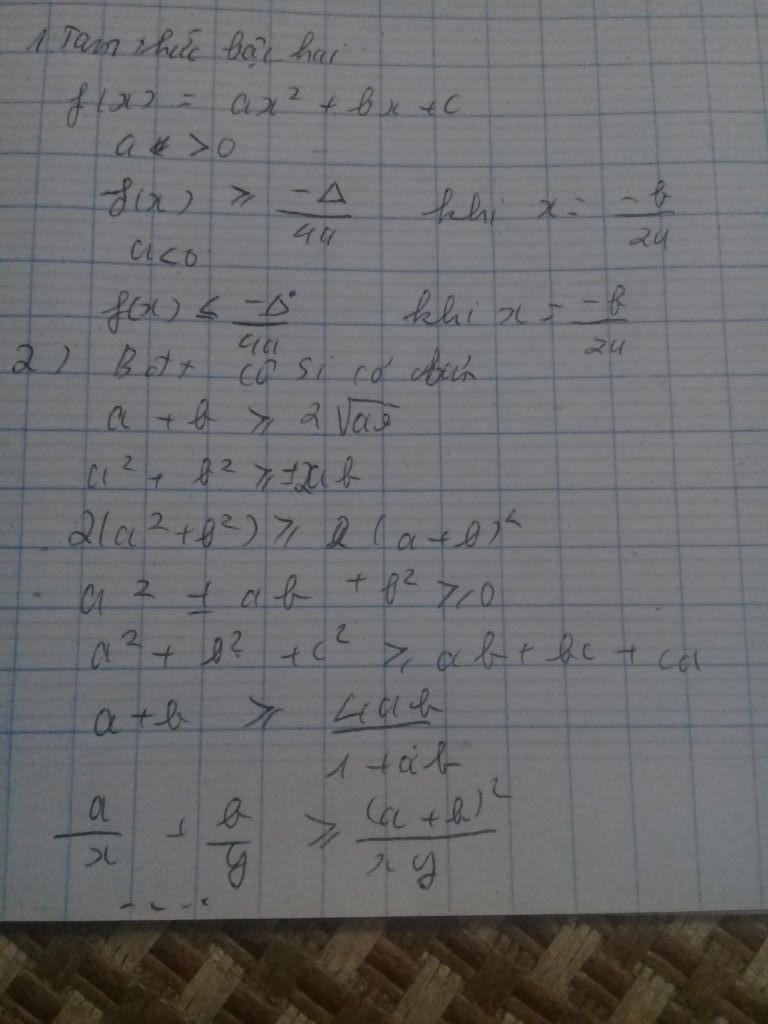 1 Tam thức bậc hai
f(x) = ax² + bx + c
a > 0
f(x) ≥ -Δ/4a khi x = -b/2a
a < 0
f(x) ≤ -Δ/4a khi x = -b/2a
2) Bđt cô si cơ bản
a + b ≥ 2√ab
a² + b² ≥ ±2ab
2(a² + b²) ≥ (a + b)²
a² ± ab + b² ≥ 0
a² + b² + c² ≥ ab + bc + ca
a + b ≥ 4ab/1 + ab
a/x + b/y ≥ (a + b)²/xy
....